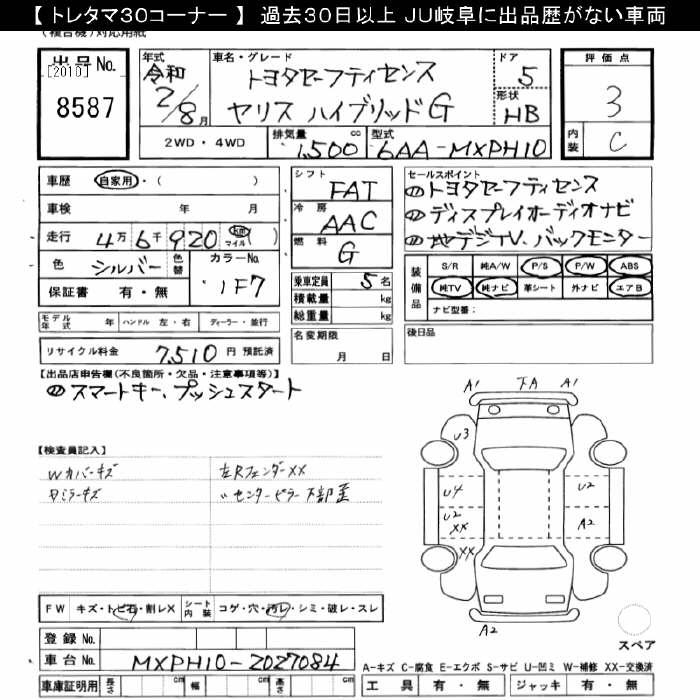 【 トレタマ30コーナー 】 過去30日以上 JU岐阜に出品歴がない車両
(複合機)対応用紙
出品No.
[2010]
8587
年式 車名・グレード ドア
令和 2/8月 トヨタセーフティセンス 5
ヤリス ハイブリッドG 形状 HB
評価点
3
内装 C
2WD・4WD 排気量 1,500 cc 型式 6AA-MXPH10
車歴 自家用・( )
車検 年 月
走行 4万6千920 km マイル ( )
色 シルバー 色替 カラーNo. 1F7
保証書 有・無
シフト FAT
冷房 AAC
燃料 G
乗車定員 5名
積載量 kg
総重量 kg
セールスポイント
トヨタセーフティセンス
ディスプレイオーディオナビ
地デジTV、バックモニター
装備品 S/R 純A/W P/S P/W ABS
純TV 純ナビ 革シート 外ナビ エアB
ナビ型番:
モデル年式 年 ハンドル 左・右 ディーラー・並行
名変期限 月 日
後日品
リサイクル料金 7,510 円 預託済
【出品店申告欄(不良箇所・欠品・注意事項等)】
スマートキー、プッシュスタート
【検査員記入】
Wカバーキズ 左Rフェンダーxx
ミラーキズ 〃センターピラー下部歪
A1 下A A1
U3
U4 U2
U2 XX A2
XX
A2
スペア
FW キズ・トビ石・割レX シート内装 コゲ・穴・汚レ・シミ・破レ・スレ
登録No.
車台No. MXPH10-2027084
A-キズ C-腐食 E-エクボ S-サビ U-凹ミ W-補修 XX-交換済
車庫証明用 長さ cm 幅 cm 高さ cm 工具 有・無 ジャッキ 有・無